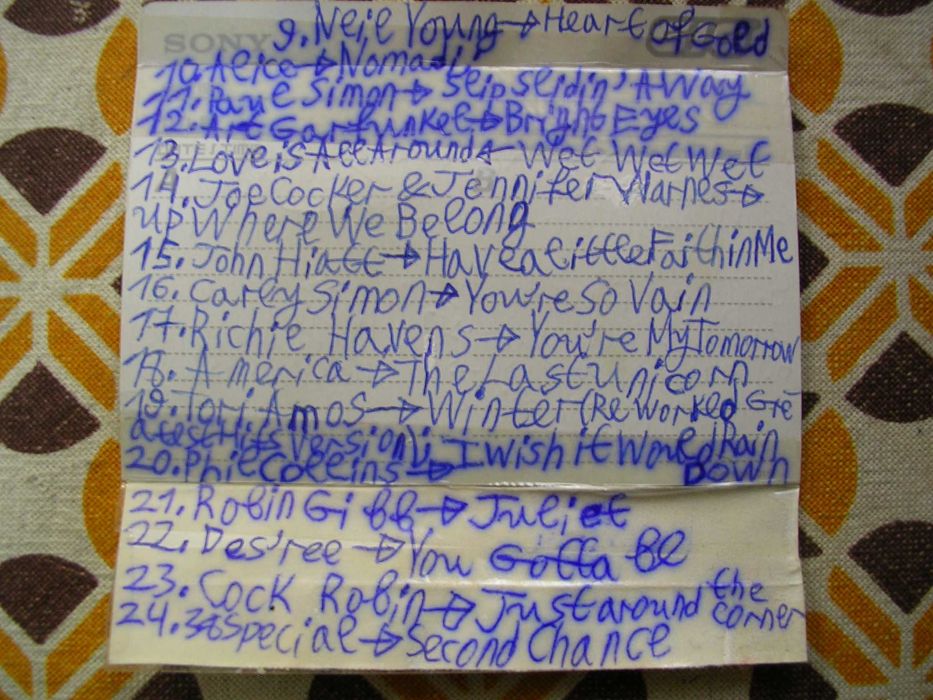 SONY
9. Neil Young → Heart of Gold
10. Alice → Nomadi
11. Paul Simon → Slip Slidin' Away
12. Art Garfunkel → Bright Eyes
13. Love is All Around ← Wet Wet Wet
14. Joe Cocker & Jennifer Warnes →
up Where We Belong
15. John Hiatt → Have a little Faith in Me
16. Carly Simon → You're So Vain
17. Richie Havens → You're My Tomorrow
18. America → The Last Unicorn
19. Tori Amos → Winter (Reworked Gre
atest Hits Version)
20. Phil Collins → I wish it Would Rain Down
21. Robin Gibb → Juliet
22. Des'ree → You Gotta be
23. Cock Robin → Just around the corner
24. 38 Special → Second Chance